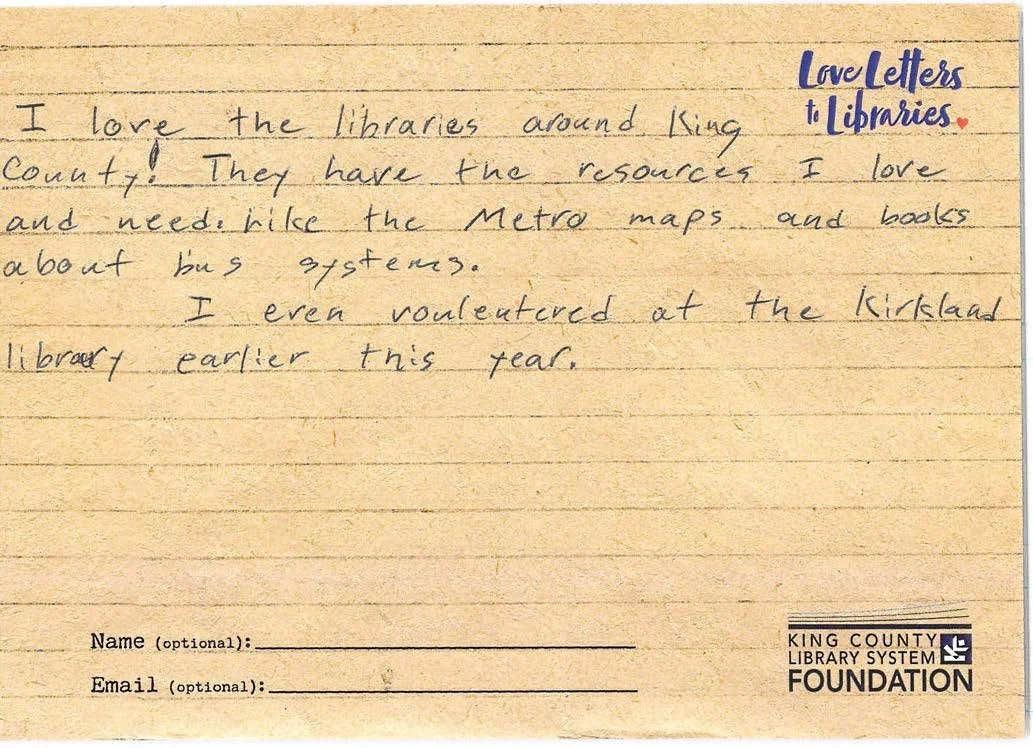 Love Letters
to Libraries
I love the libraries around King
County! They have the resources I love
and need. Like the Metro maps and books
about bus systems.
I even vouleutered at the Kirkland
library earlier this year.
Name (optional):
Email (optional):
KING COUNTY
LIBRARY SYSTEM
FOUNDATION